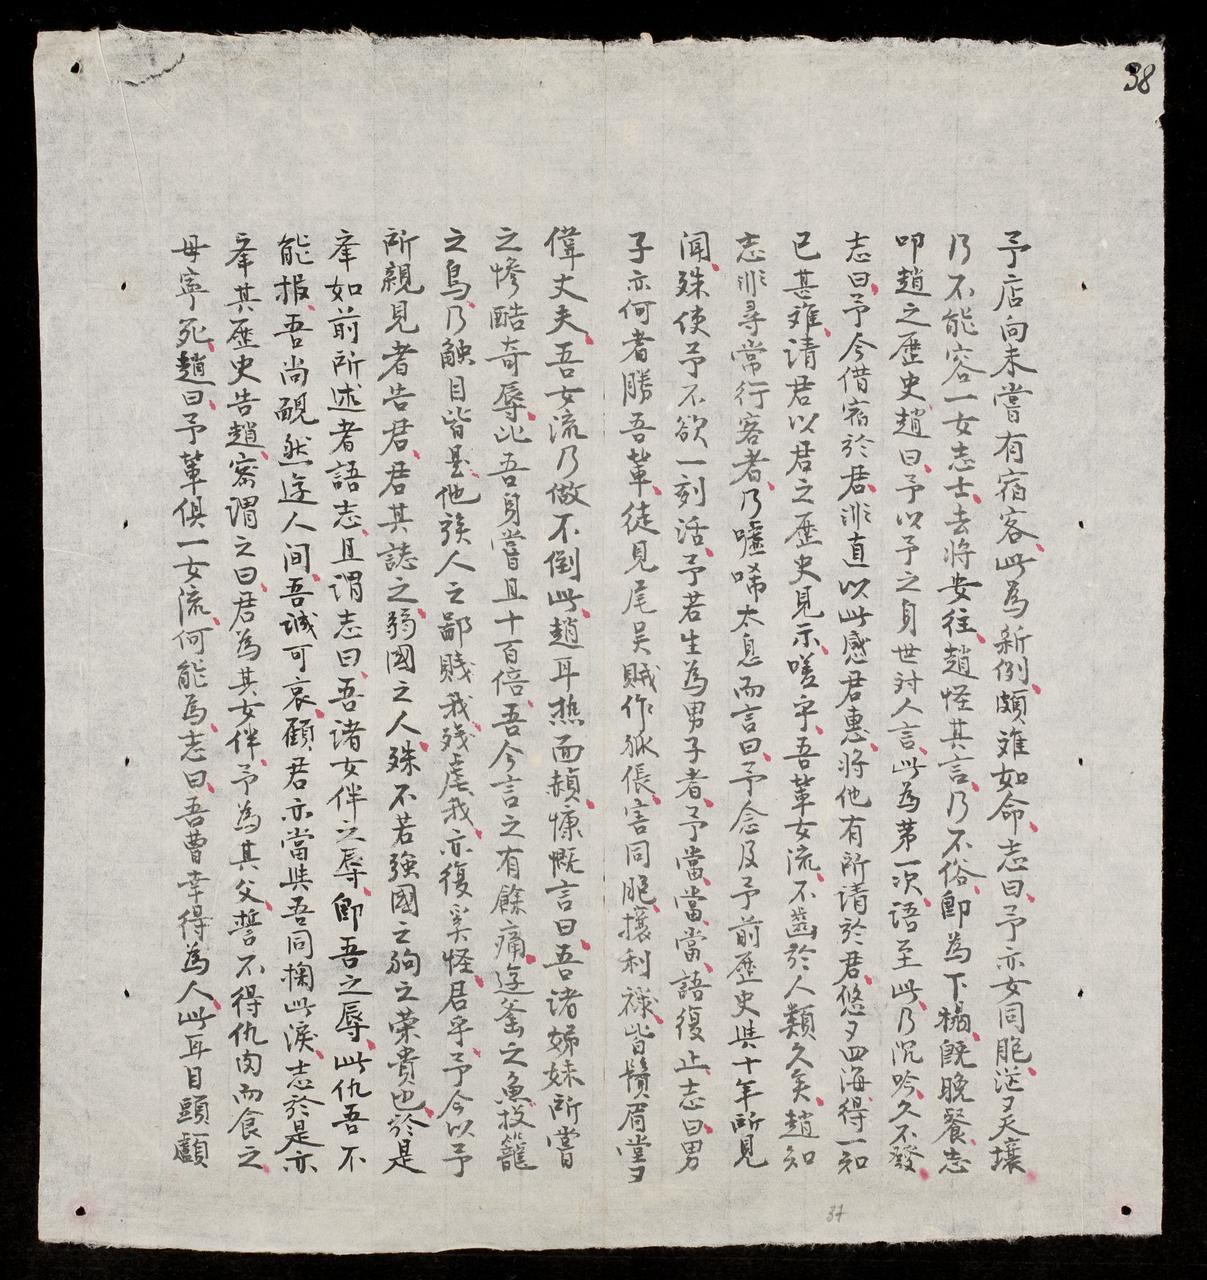 38
予店向未嘗有宿客此為新例頗难如命志曰予亦女同胞茫〻天壤
乃不能容一女志士去將安往趙怪其言乃不俗即為下榻既晚餐志
叩趙之歷史趙曰予以予之身世对人言此為苐一次语至此乃沉吟久不發
志曰予今借宿於君非直以此感君惠將他有所請於君悠〻四海得一知
已甚难請君以君之歷史見示嗟乎吾輩女流不齒於人類久矣趙知
志非尋常行客者乃噓唏太息而言曰予念及予前歷史與十年所見
闻殊使予不欲一刻活予若生為男子者予當當當語復止志曰男
子亦何者勝吾輩徒見尾吴賊作派倀害同胞攘利祿皆鬚眉堂〻
偉丈夫吾女流乃做不倒此趙耳熱面頳慷慨言曰吾诸娣妹所嘗
之慘酷奇辱比吾身嘗且十百倍吾今言之有餘痛遊釜之魚投籠
之鳥乃触目皆是他族人之鄙賤我残虐我亦復奚怪君乎予今以予
所親見者告君君其誌之弱國之人殊不若強國之狗之荣貴也於是
牽如前所述者語志且谓志曰吾诸女伴之辱即吾之辱此仇吾不
能报吾尚靦然遊人间吾诚可哀顧君亦當與吾同掬此淚志於是亦
牽其歷史告趙密谓之曰君為其女伴予為其父誓不得仇肉而食之
毋寧死趙曰予輩俱一女流何能為志曰吾曹幸得為人此耳目頭顱
37